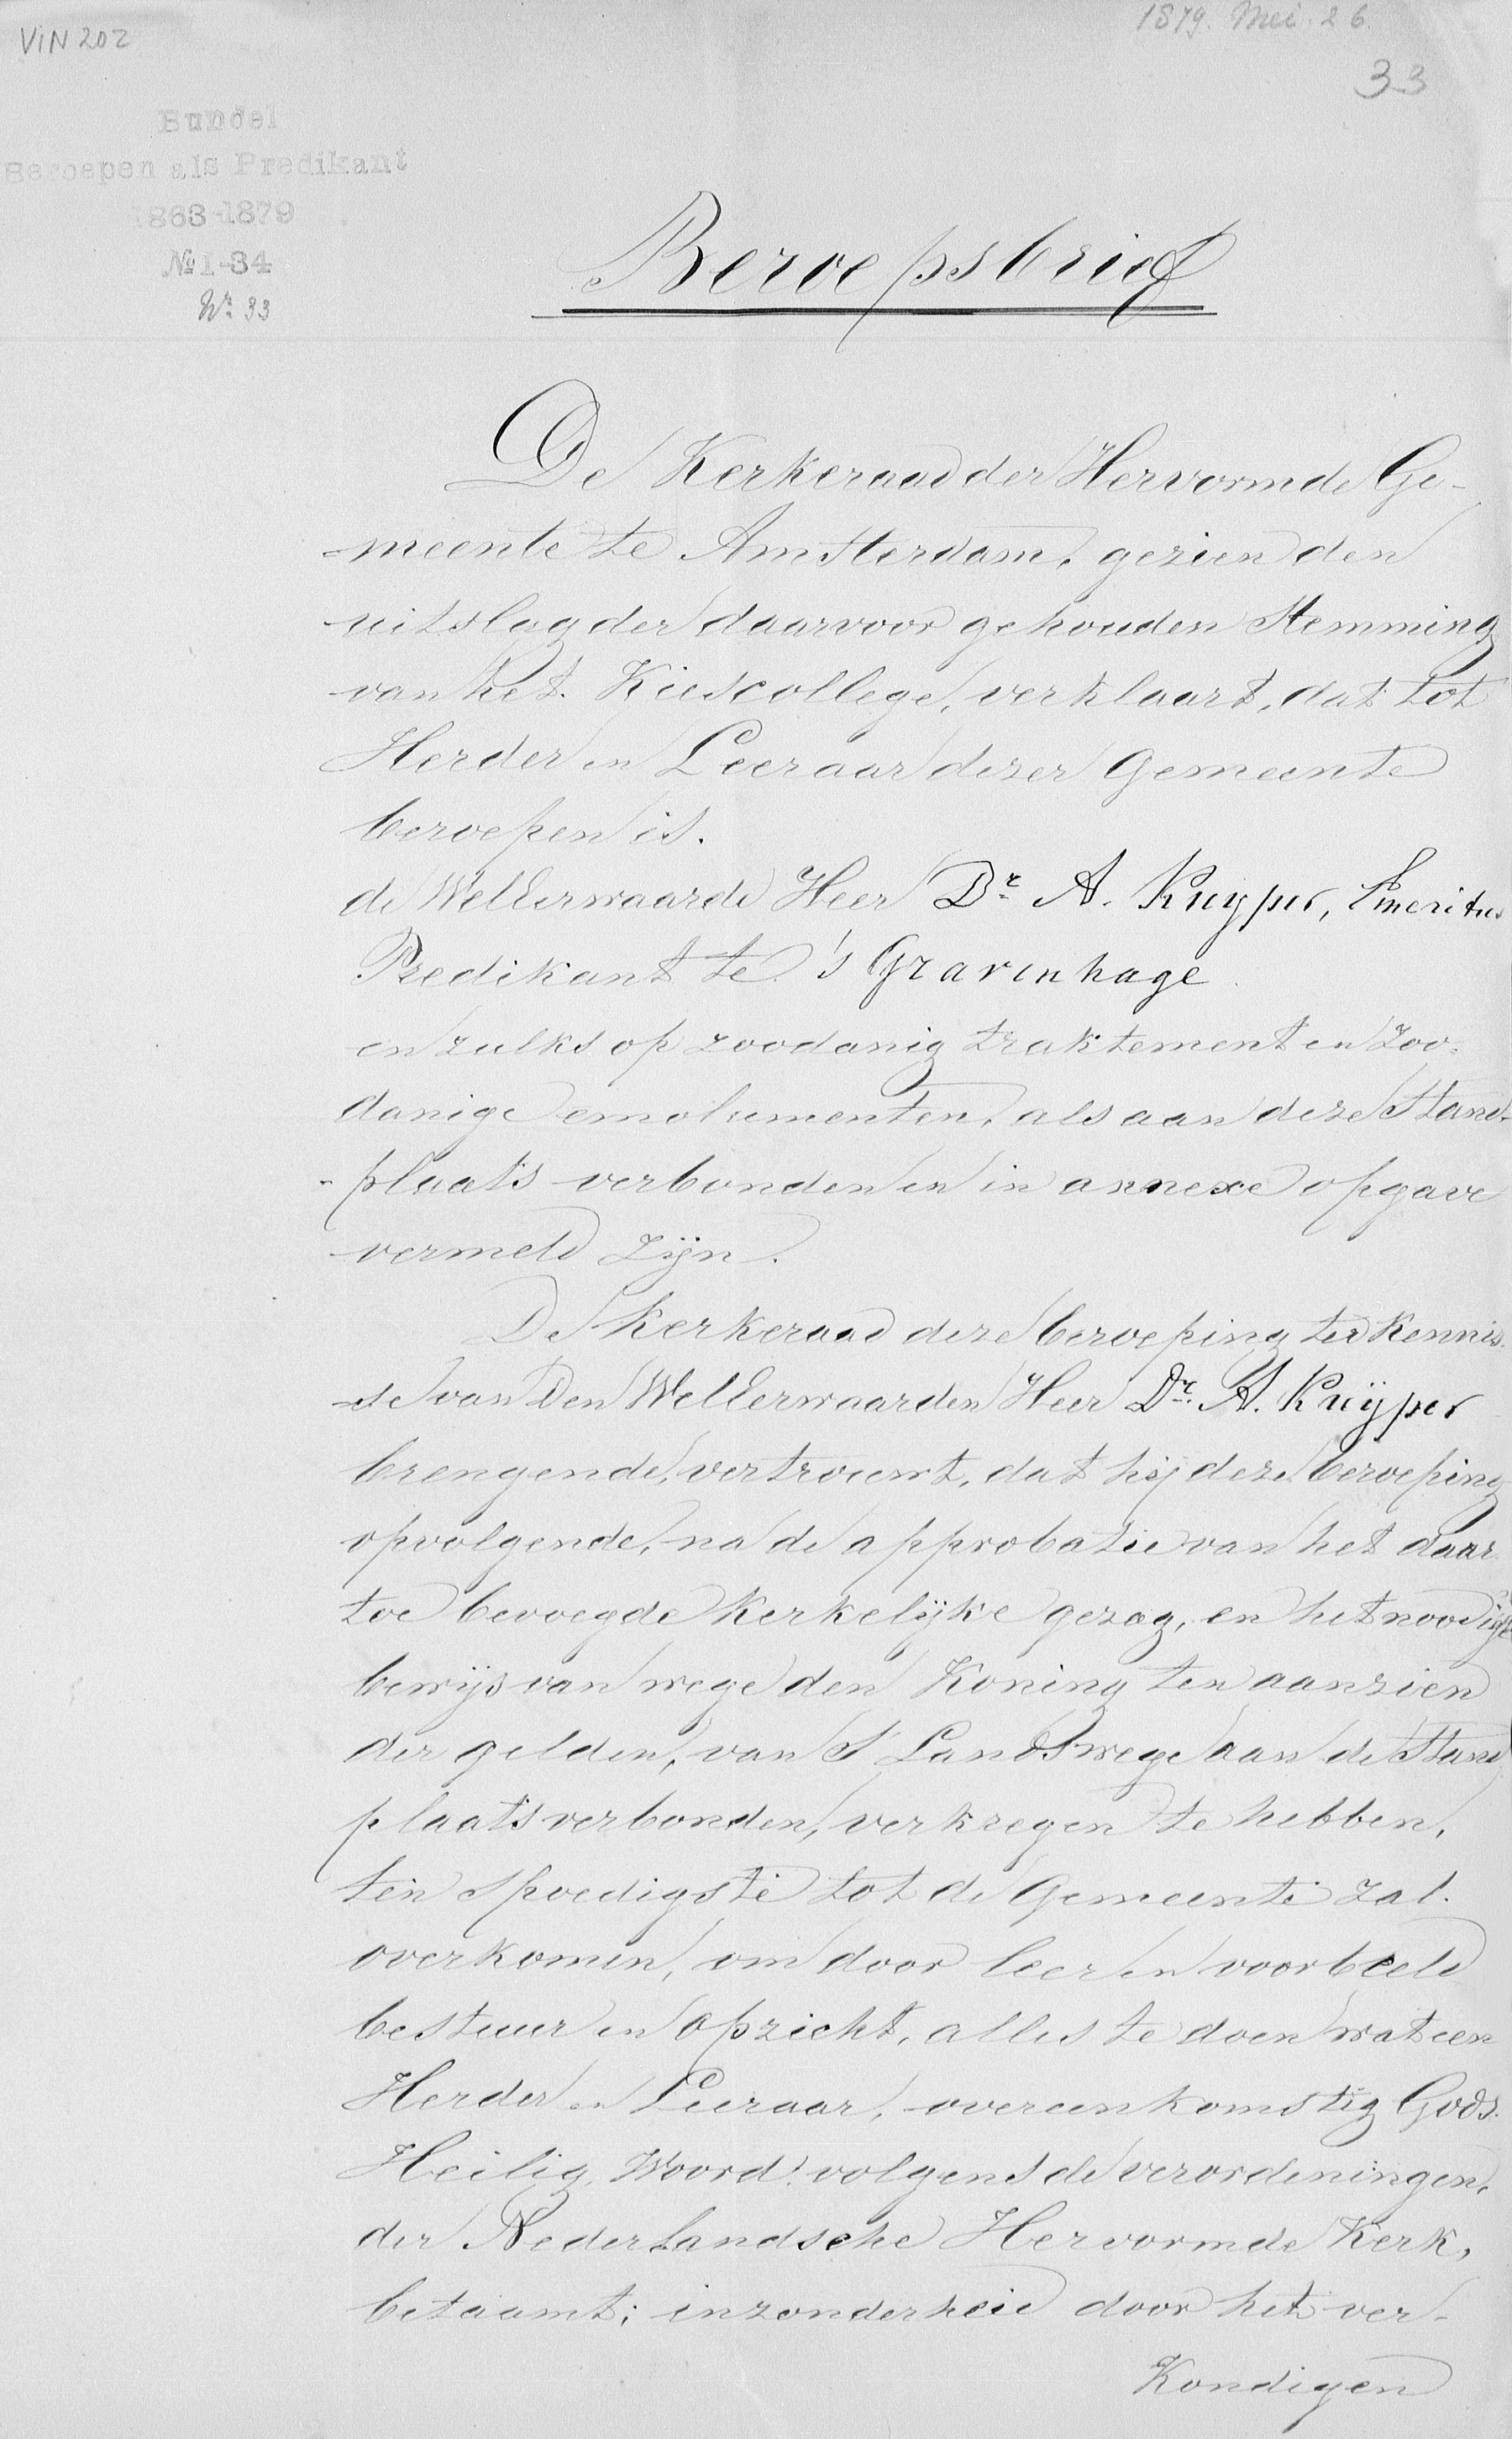 ViN 202
1879. Mei. 26.
33
Bundel
Beroepen als Predikant
1863-1879
No 1-34
Nr. 33
Beroepsbrief
De Kerkeraad der Hervormde Ge-
meente te Amsterdam, gezien den
uitslag der daarvoor gehouden Stemming
van het Kiescollege, verklaart, dat tot
Herder en Leeraar dezer Gemeente
beroepen is.
de WelEerwaarde Heer Dr. A. Kuyper, Emeritus
Predikant te 's Gravenhage
en zulks op zoodanig traktement en zoo-
danige emolumenten, als aan deze Stand-
plaats verbonden en in annexe opgave
vermeld zijn.
De Kerkeraad deze beroeping ter kennis-
se van den WelEerwaarden Heer Dr. A. Kuÿper
brengende, vertrouwt, dat hij deze beroeping
opvolgende, na de approbatie van het daar
toe bevoegde Kerkelijke gezag, en het noodige
bewijs van wege den Koning ten aanzien
der gelden, van S' Landswege aan de Stand
plaats verbonden, verkregen te hebben,
ten spoedigste tot de Gemeente zal
overkomen, om door leer en voorbeeld
bestuur en opzicht, alles te doen wat een
Herder en Leeraar, overeenkomstig Gods
Heilig Woord, volgens de verordeningen,
der Nederlandsche Hervormde Kerk,
betaamt; inzonderheid door het ver-
Kondigen